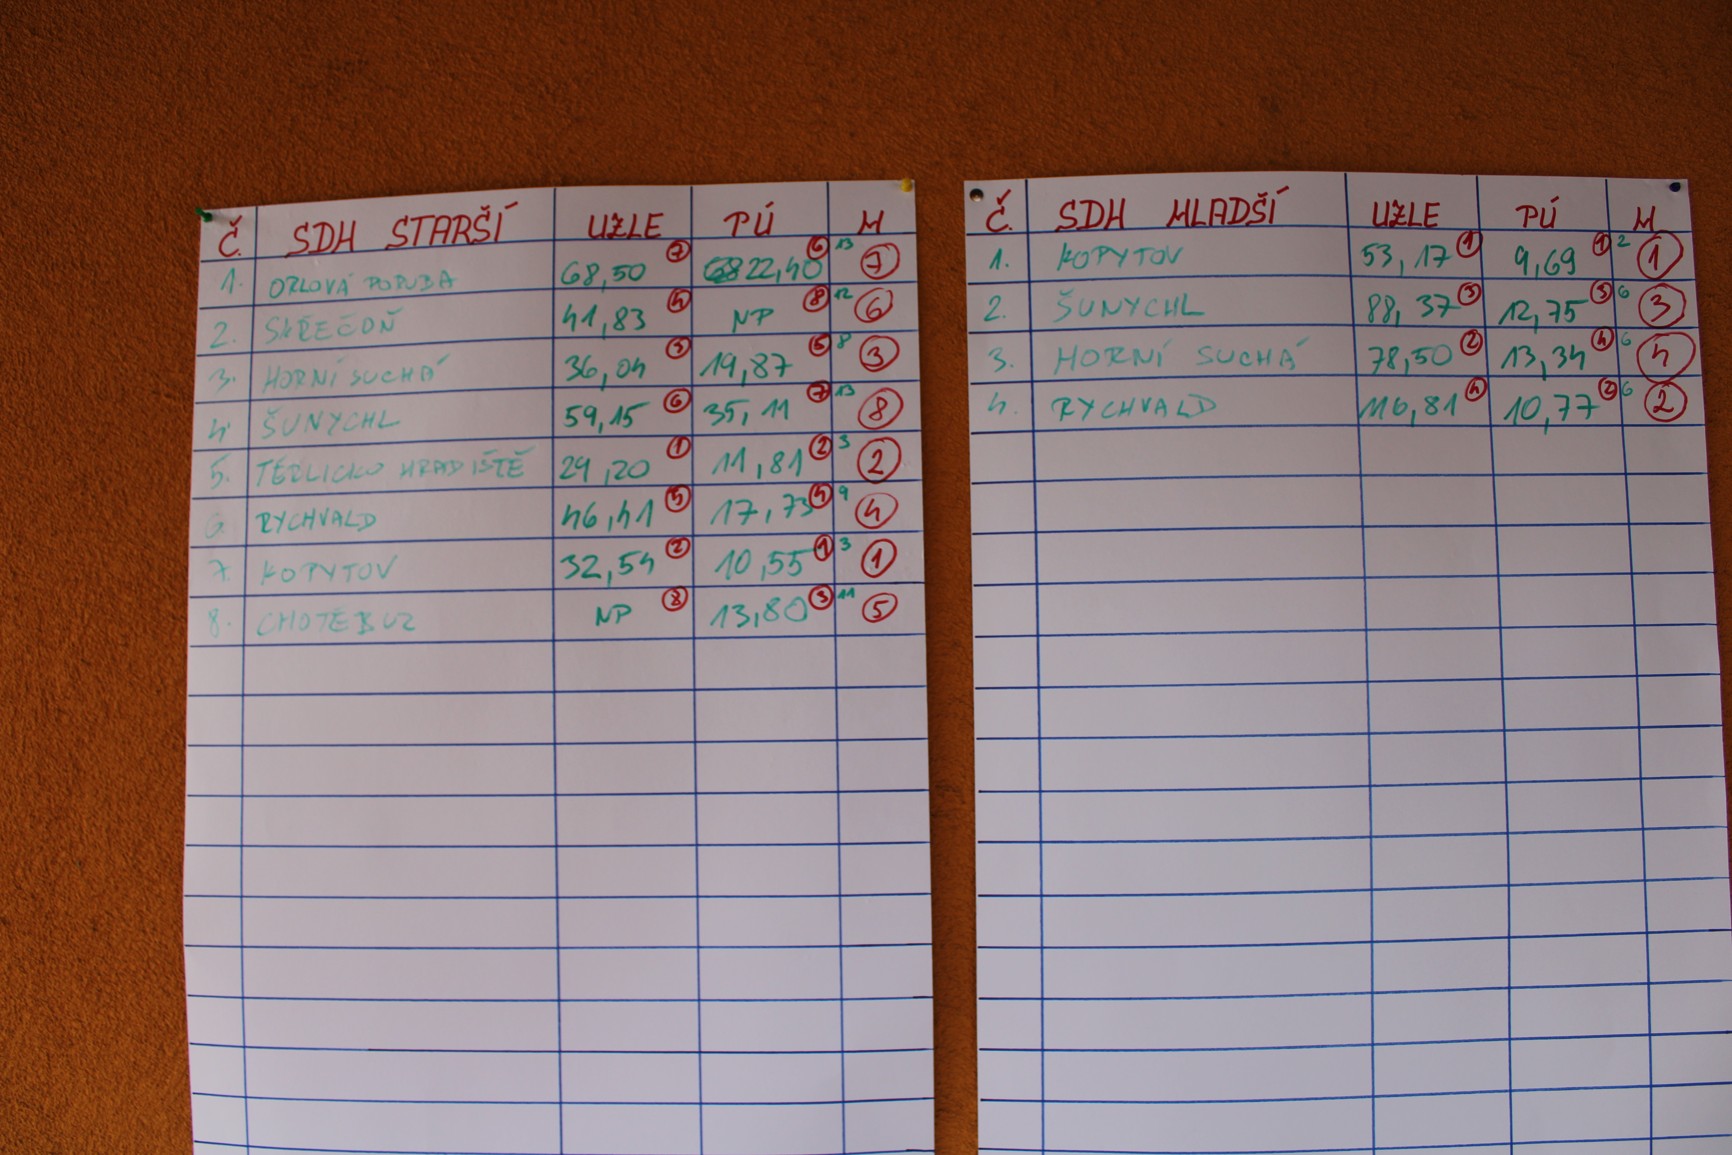 Č. SDH STARŠÍ UZLE PÚ M
1. ORLOVÁ PORUBA 68,50 7 22,40 6 13 7
2. SKŘEČOŇ 41,83 4 NP 8 12 6
3. HORNÍ SUCHÁ 36,04 3 19,87 5 8 3
4. ŠUNYCHL 59,15 6 35,11 7 13 8
5. TĚRLICKO HRADIŠTĚ 29,20 1 11,81 2 3 2
6. RYCHVALD 46,41 5 17,73 4 9 4
7. KOPYTOV 32,54 2 10,55 1 3 1
8. CHOTĚBUZ NP 8 13,80 3 11 5
Č. SDH MLADŠÍ UZLE PÚ M
1. KOPYTOV 53,17 1 9,69 1 2 1
2. ŠUNYCHL 88,37 3 12,75 3 6 3
3. HORNÍ SUCHÁ 78,50 2 13,34 4 6 4
4. RYCHVALD 116,81 4 10,77 2 6 2